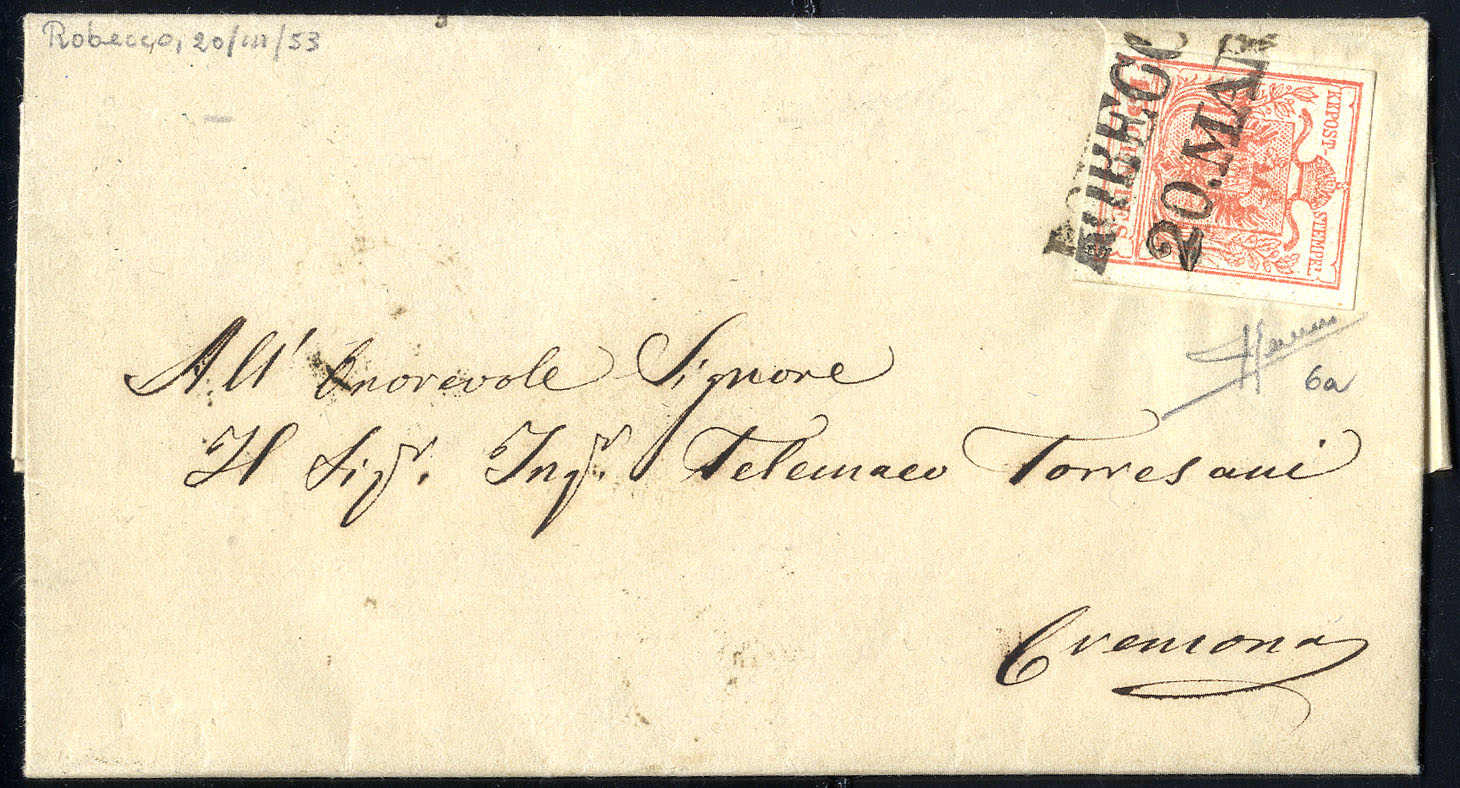 Robecco, 20/III/53
ROBECCO
20.MAR
KKPOST-STEMPEL
CENTES
All' Onorevole Signore
Il Sigr. Ingr. Telemaco Torresani
6a
Cremona